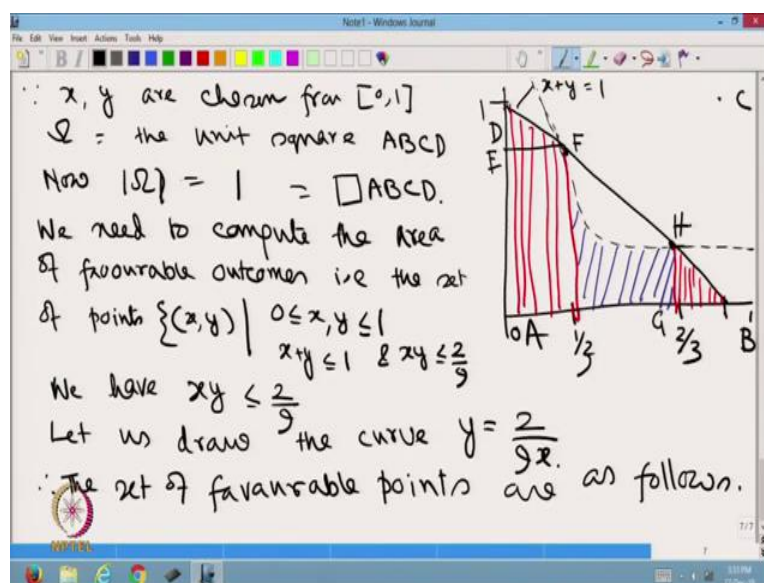 Note1 - Windows Journal
File Edit View Insert Actions Tools Help
∵ x, y are chosen from [0,1]
Ω = the unit square ABCD
Now |Ω| = 1 = □ABCD.
We need to compute the area
of favourable outcomes i.e the set
of points {(x,y) | 0≤x,y≤1
x+y≤1 & xy≤2/9
We have xy ≤ 2/9
Let us draw the curve y = 2/9x.
∴ The set of favaurable points are as follows.
x+y=1
1
C
D
E
F
H
0
A
1/3
G
2/3
1
B
NPTEL
7/7
7